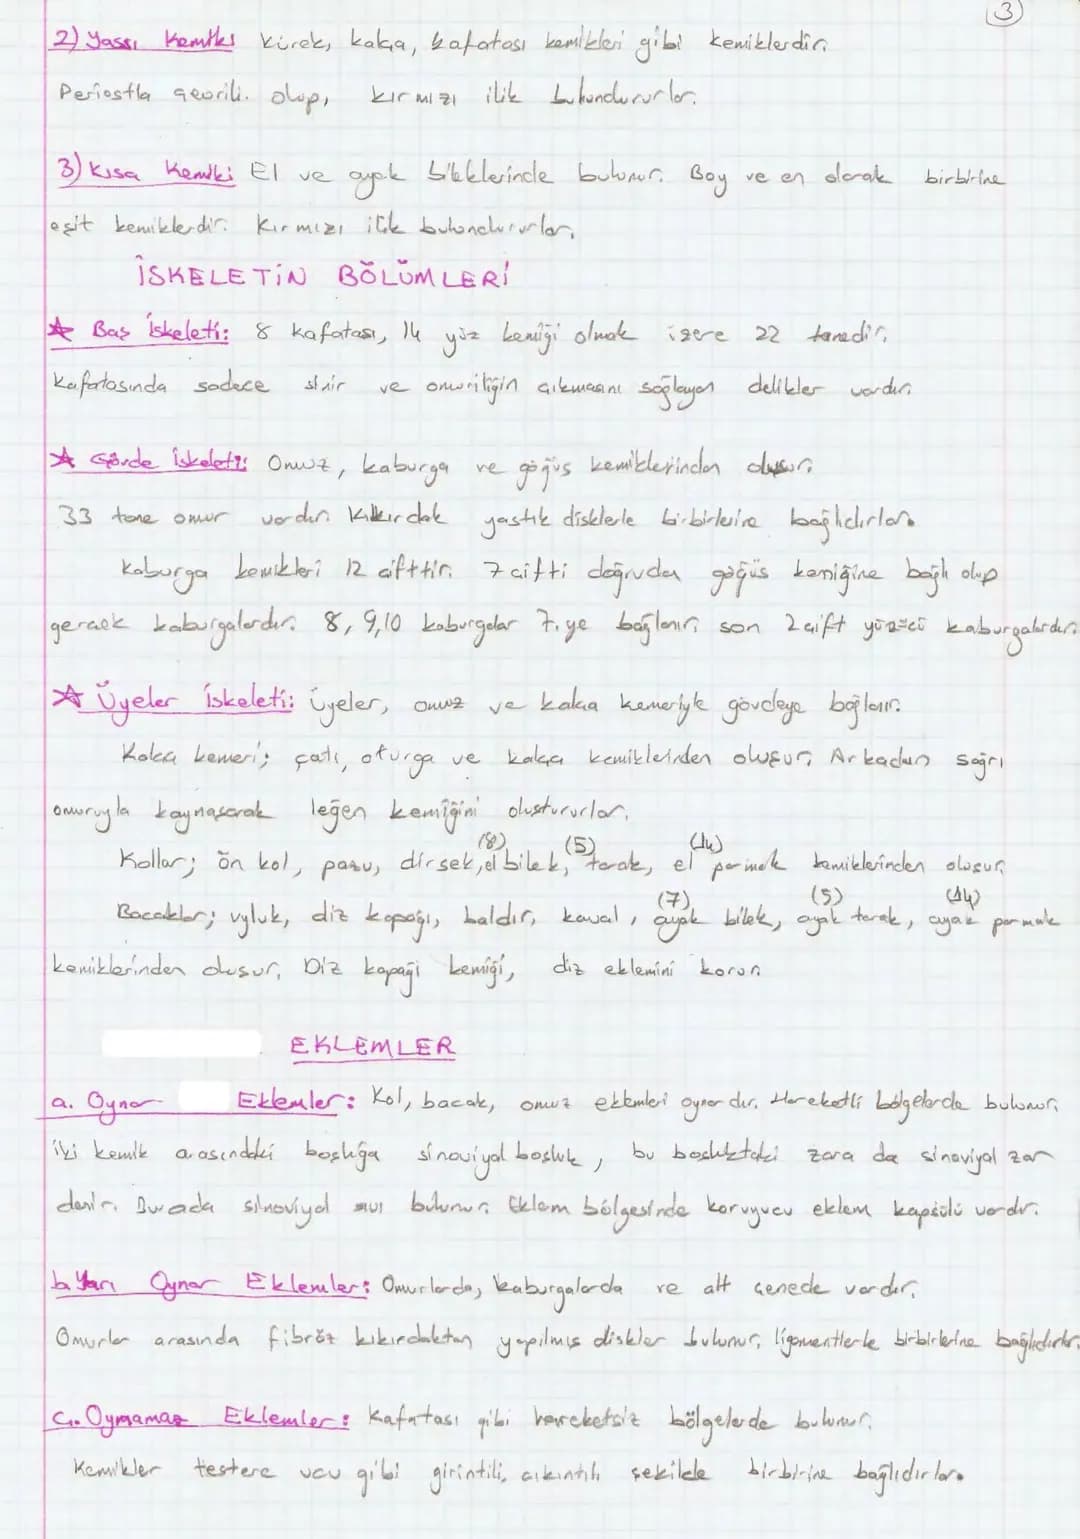 3
2) Yassı Kemik: Kürek, kalça, kafatası kemikleri gibi kemiklerdir.
Periostla çevrili olup, kırmızı ilik bulundururlar.
3) Kısa Kemik: El ve ayak bileklerinde bulunur. Boy ve en olarak birbirine
eşit kemiklerdir. Kırmızı ilik bulundururlar.
İSKELETİN BÖLÜMLERİ
☆ Baş İskeleti: 8 kafatası, 14 yüz kemiği olmak üzere 22 tanedir.
Kafatasında sadece sinir ve omuriliğin çıkmasını sağlayan delikler vardır.
☆ Gövde İskeleti: Omuz, kaburga ve göğüs kemiklerinden oluşur.
33 tane omur vardır. Kıkırdak yastık disklerle birbirlerine bağlıdırlar.
Kaburga kemikleri 12 çifttir. 7 çifti doğrudan göğüs kemiğine bağlı olup
gerçek kaburgalardır. 8, 9, 10 kaburgalar 7. ye bağlanır, son 2 çift yüzücü kaburgalardır.
☆ Üyeler İskeleti: Üyeler, omuz ve kalça kemeriyle gövdeye bağlanır.
Kalça kemeri; çatı, oturga ve kalça kemiklerinden oluşur. Arkadan sağrı
omuruyla kaynaşarak leğen kemiğini oluştururlar.
Kollar; ön kol, pazu, dirsek, el bilek, (8) tarak, (5) el parmak (14) kemiklerinden oluşur.
Bacaklar; uyluk, diz kapağı, baldır, kaval, ayak bilek, (7) ayak tarak, (5) ayak parmak (14)
kemiklerinden oluşur. Diz kapağı kemiği, diz eklemini korur.
EKLEMLER
a. Oynar Eklemler: Kol, bacak, omuz eklemleri oynardır. Hareketli bölgelerde bulunur.
İki kemik arasındaki boşluğa sinoviyal boşluk, bu boşluktaki zara da sinoviyal zar
denir. Burada sinoviyal sıvı bulunur. Eklem bölgesinde koruyucu eklem kapsülü vardır.
b. Yarı Oynar Eklemler: Omurlarda, kaburgalarda ve alt çenede vardır.
Omurlar arasında fibröz kıkırdaktan yapılmış diskler bulunur, ligamentlerle birbirlerine bağlıdırlar.
c. Oynamaz Eklemler: Kafatası gibi hareketsiz bölgelerde bulunur.
Kemikler testere ucu gibi girintili, çıkıntılı şekilde birbirine bağlıdırlar.